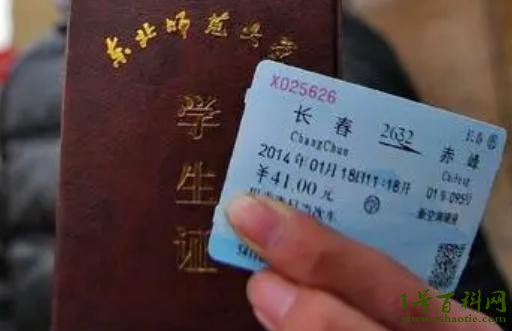 东北师范大学
学生证
X025626
长春 2632 赤峰
长春
ChangChun Chifeng
2014年01月18日11:18开 01车095号
￥41.00元 学 新空调硬座
1号百科网